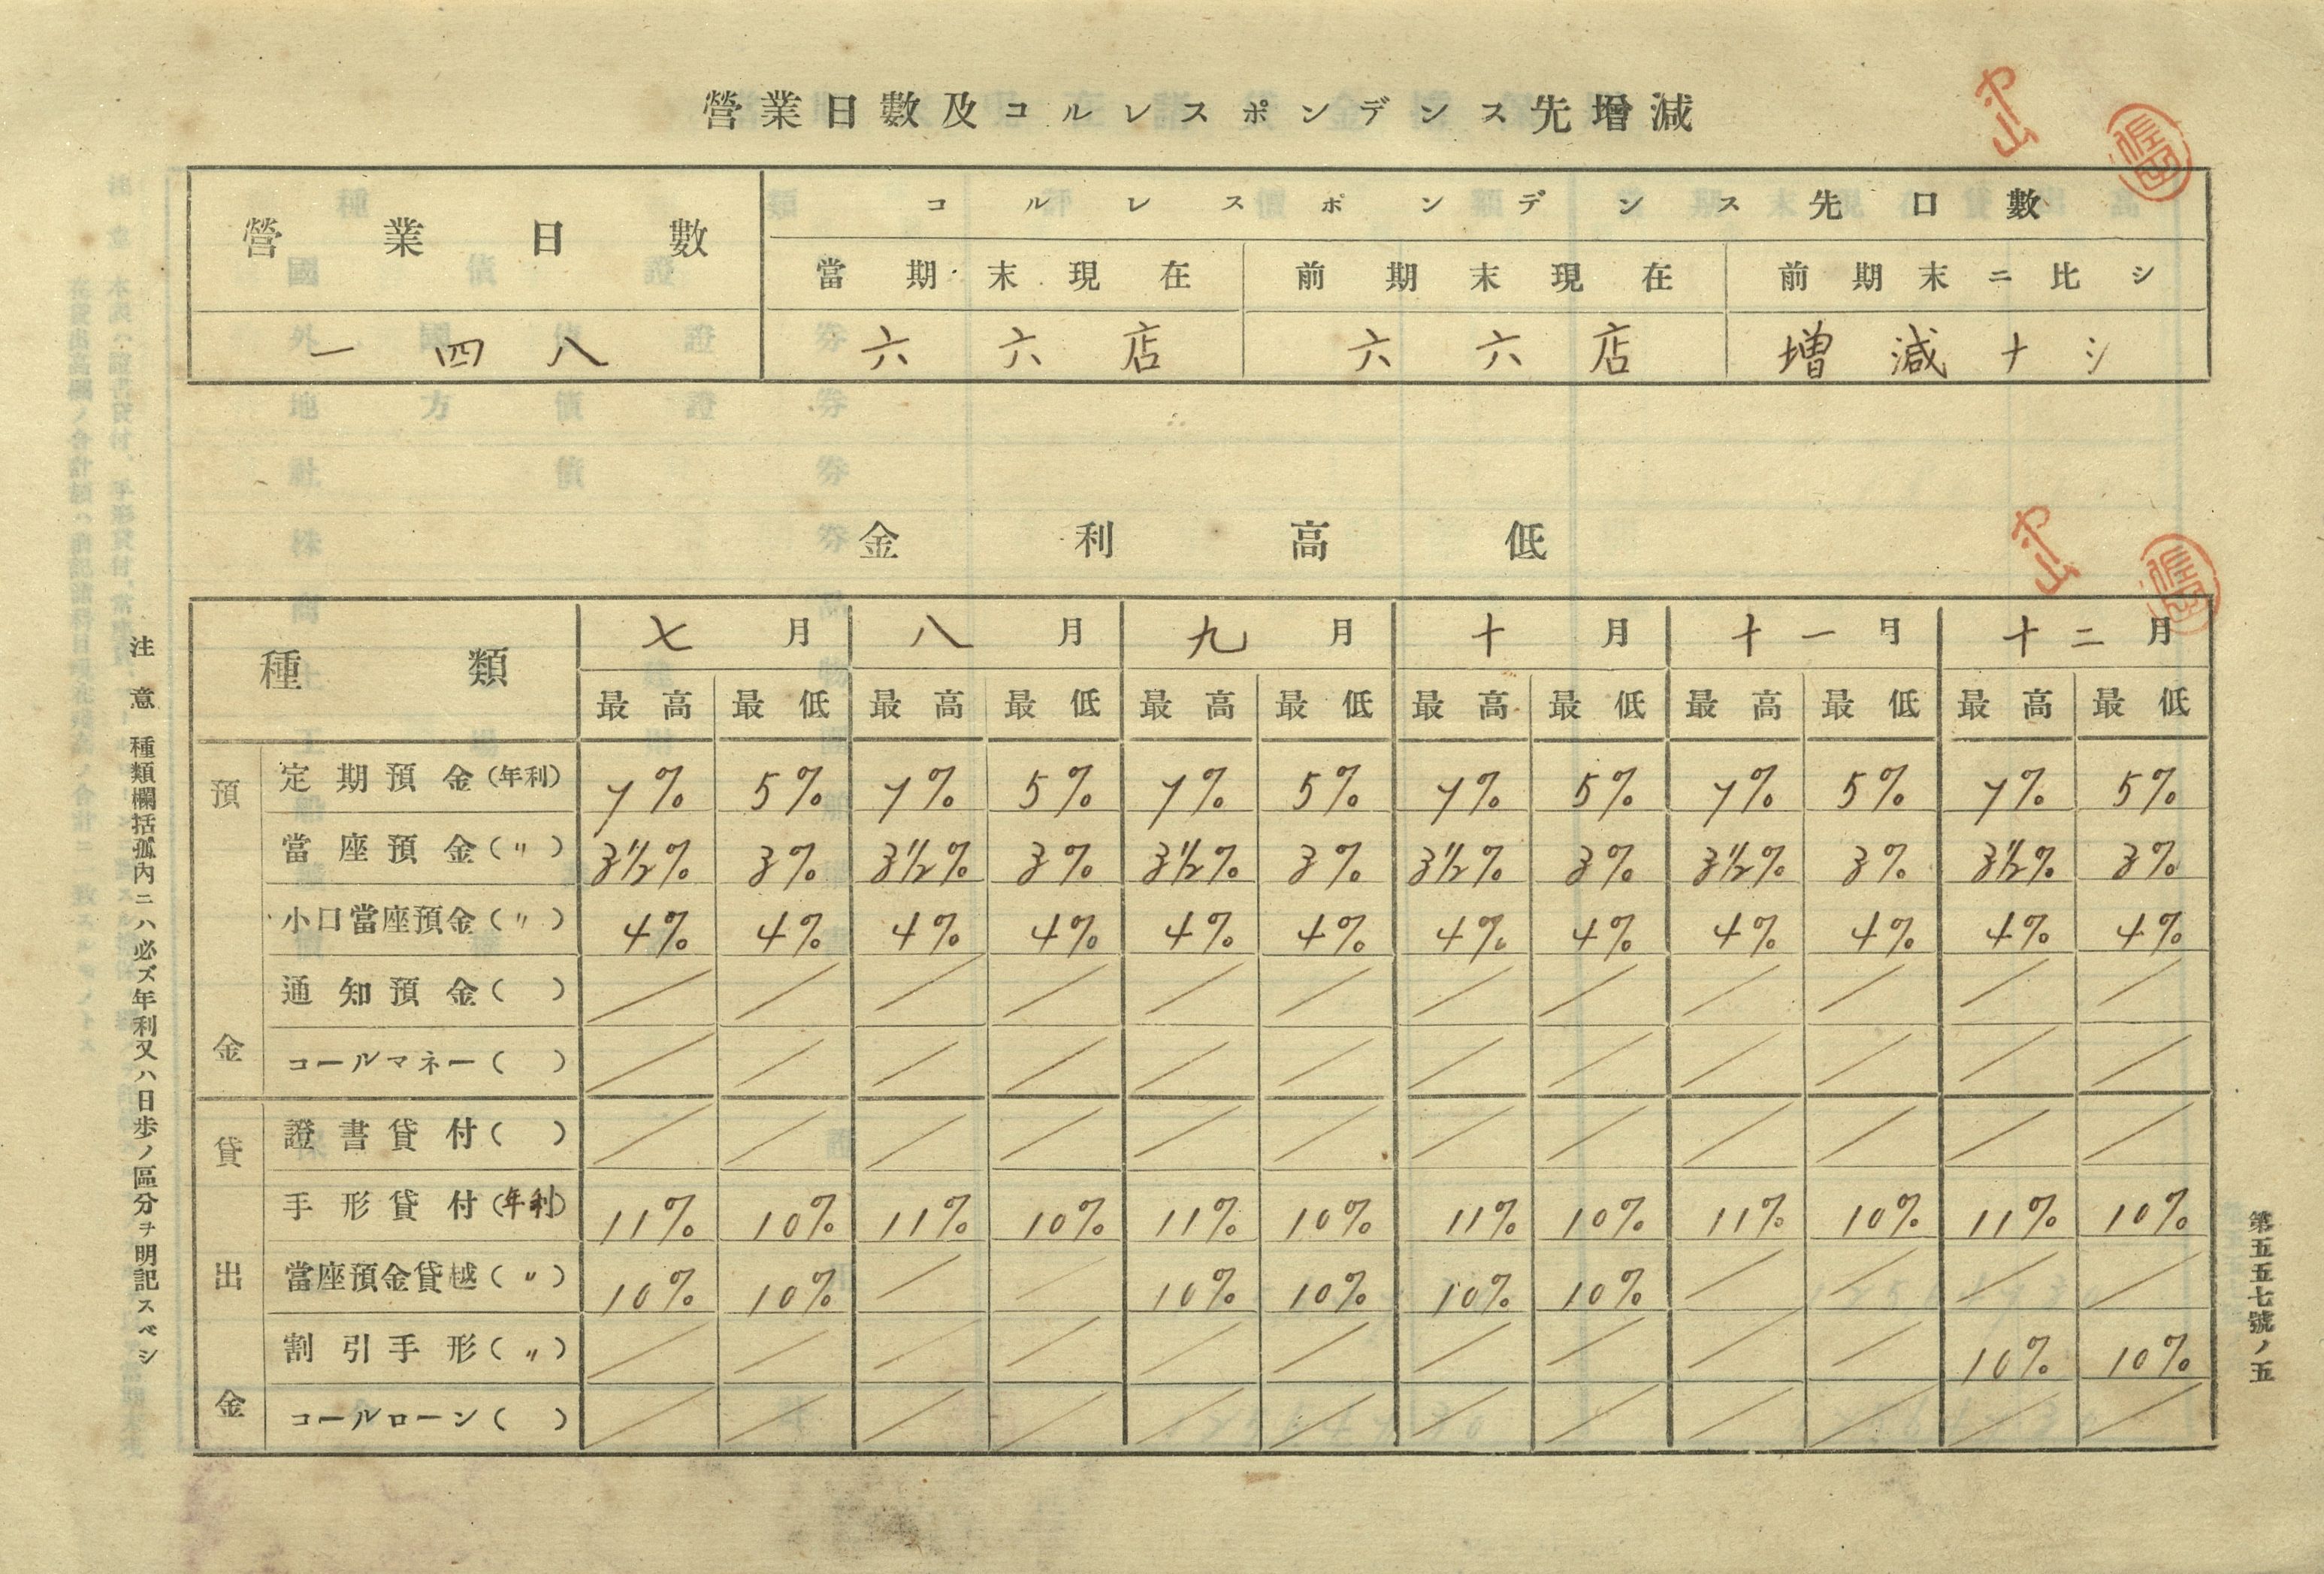 營業日數及コルレスポンデンス先增減
營業日數 コルレスポンデンス先口數
當期末現在 前期末現在 前期末ニ比シ
一四八 六六店 六六店 増減ナシ
金利高低
種類 七月 八月 九月 十月 十一月 十二月
最高 最低 最高 最低 最高 最低 最高 最低 最高 最低 最高 最低
預金
定期預金(年利) 7% 5% 7% 5% 7% 5% 7% 5% 7% 5% 7% 5%
當座預金(〃) 3½% 3% 3½% 3% 3½% 3% 3½% 3% 3½% 3% 3½% 3%
小口當座預金(〃) 4% 4% 4% 4% 4% 4% 4% 4% 4% 4% 4% 4%
通知預金( ) / / / / / / / / / / / /
コールマネー( ) / / / / / / / / / / / /
貸出金
證書貸付( ) / / / / / / / / / / / /
手形貸付(年利) 11% 10% 11% 10% 11% 10% 11% 10% 11% 10% 11% 10%
當座預金貸越(〃) 10% 10% / / 10% 10% 10% 10% / / / /
割引手形(〃) / / / / / / / / / / 10% 10%
コールローン( ) / / / / / / / / / / / /
注意 種類欄括孤內ニハ必ズ年利又ハ日步ノ區分ヲ明記スベシ
第五五七號ノ五